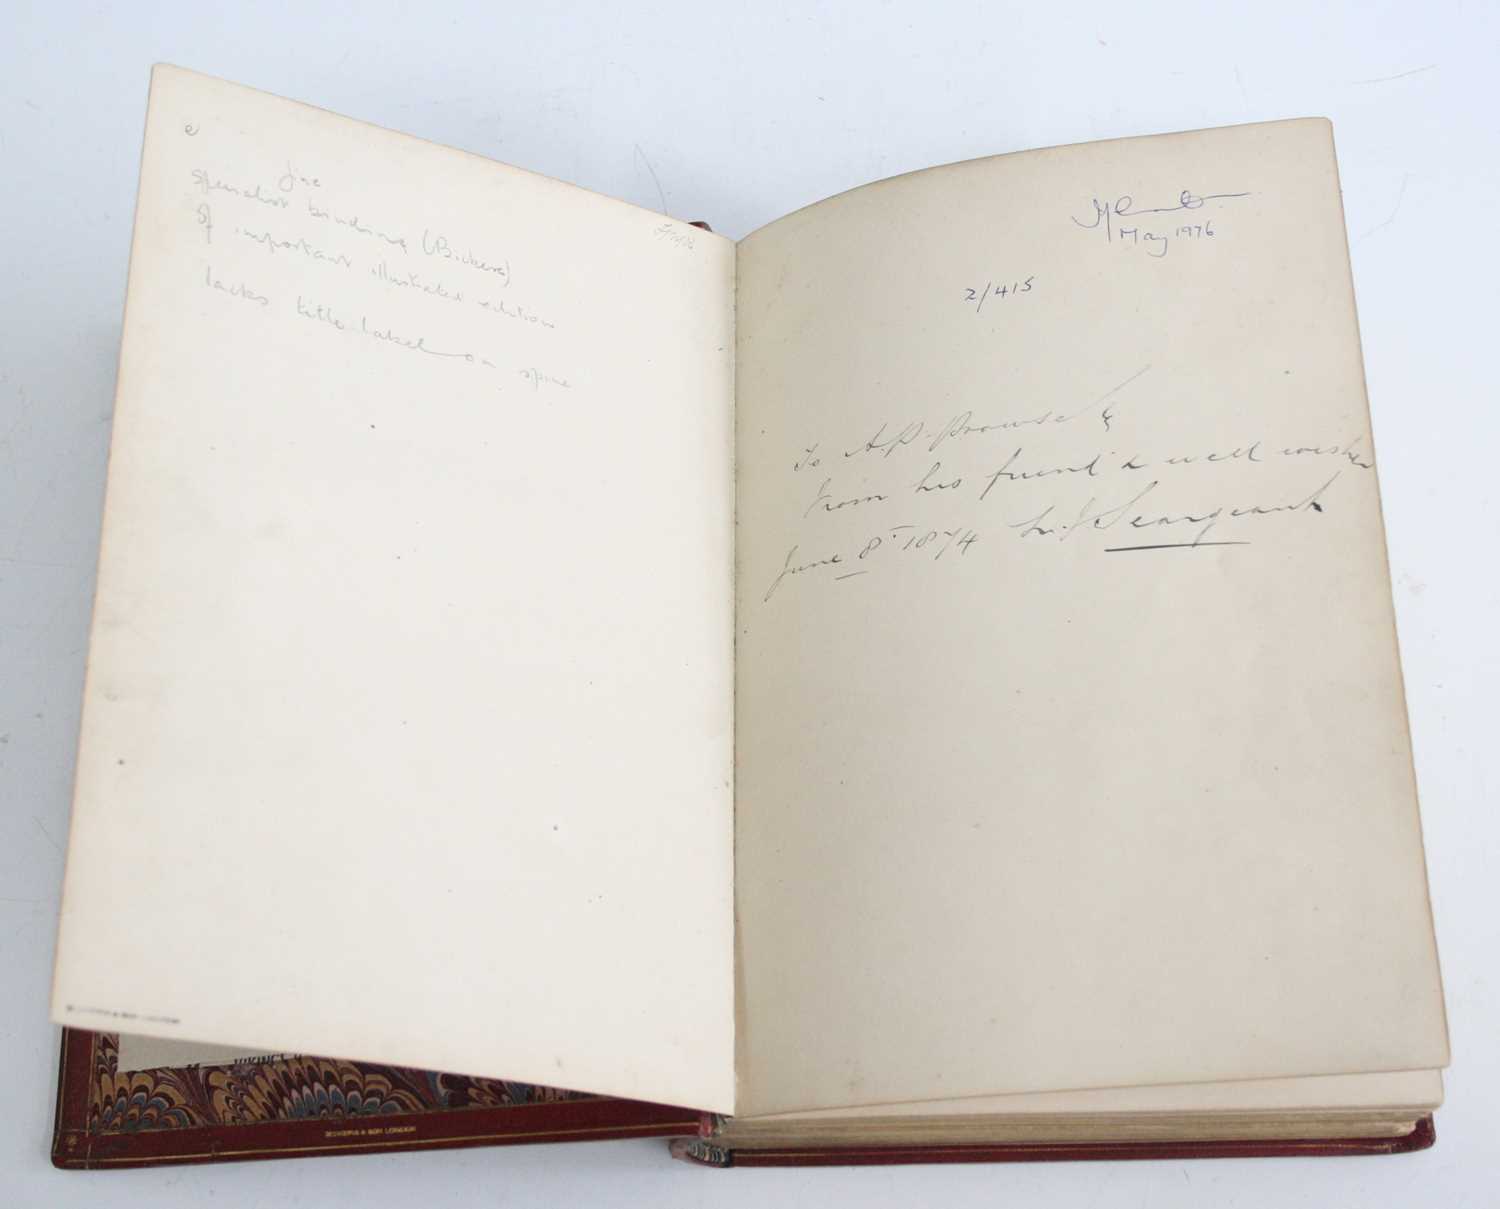 e
fine
specialist binding (Bickers)
of important illustrated edition
lacks title label on spine
May 1976
2/415
To A.P. Prowse &
from his friend & well wisher
June 8th 1874 Seargeant
BICKERS & SON LONDON